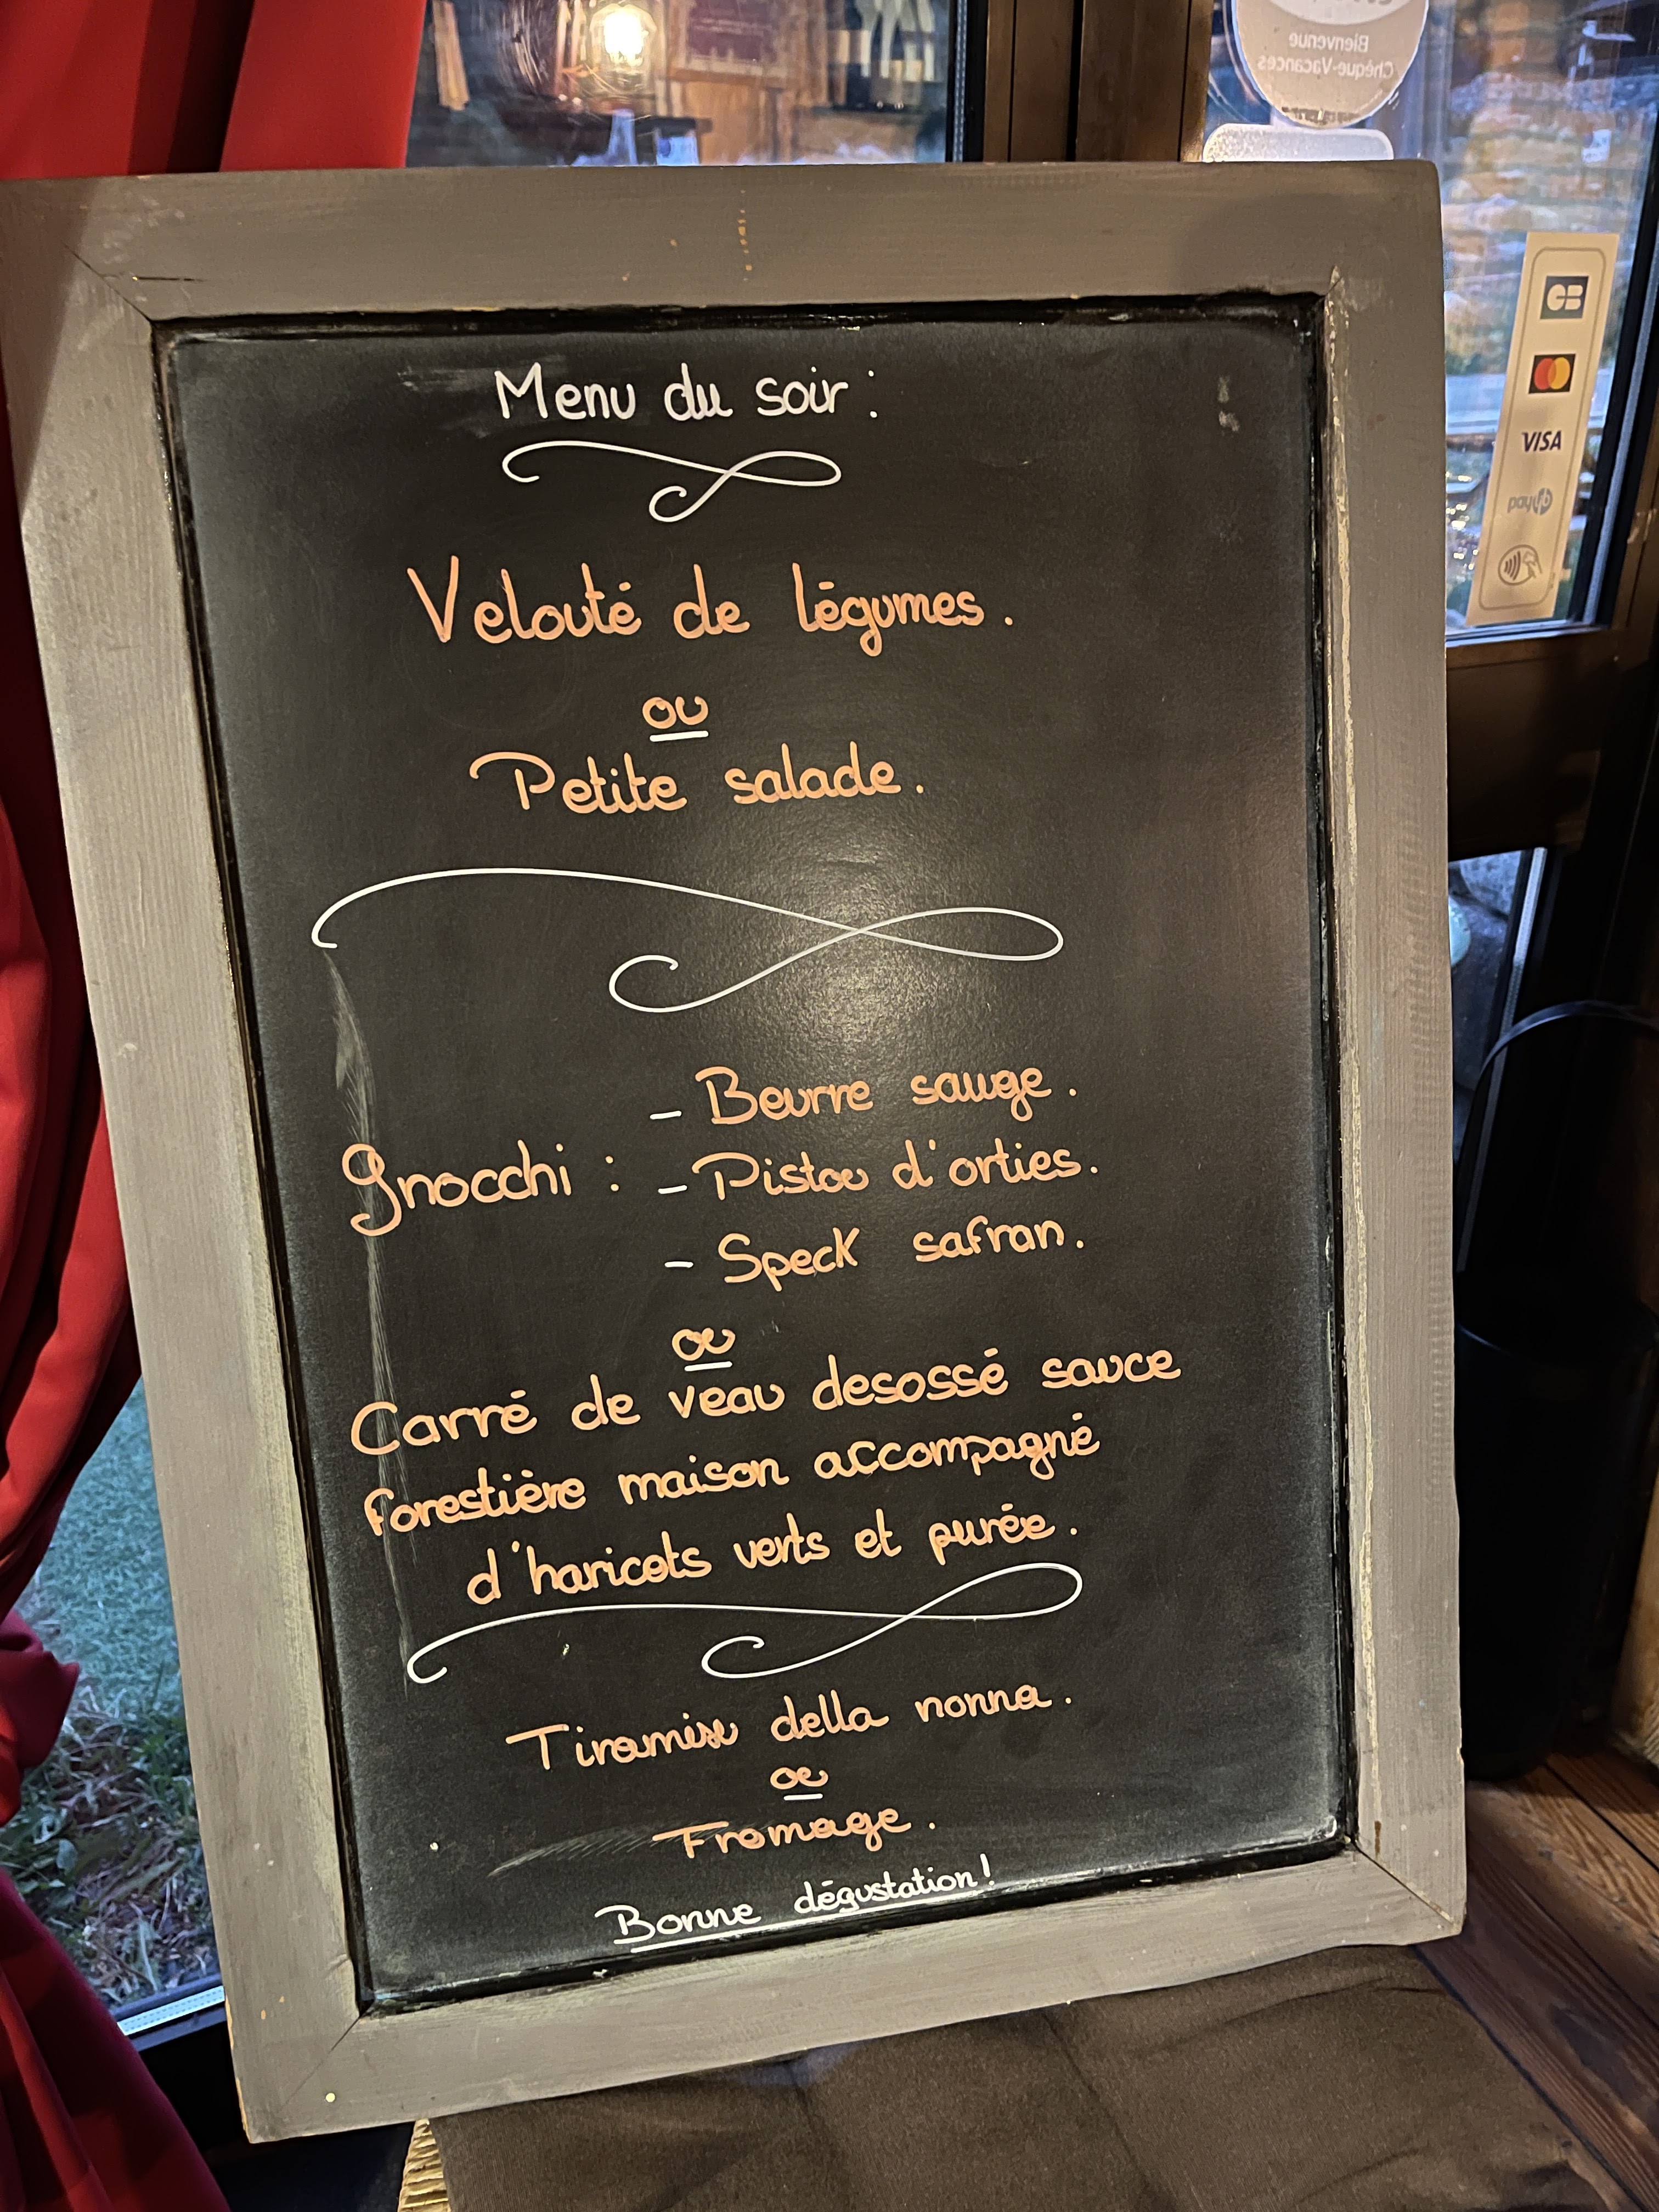 Bienvenue
Chèque-Vacances
CB
VISA
Menu du soir :
Velouté de légumes.
ou
Petite salade.
- Beurre sauge.
Gnocchi : - Pistou d'orties.
- Speck safran.
ou
Carré de veau desossé sauce
forestière maison accompagné
d'haricots verts et purée.
Tiramisu della nonna.
ou
Fromage.
Bonne dégustation!